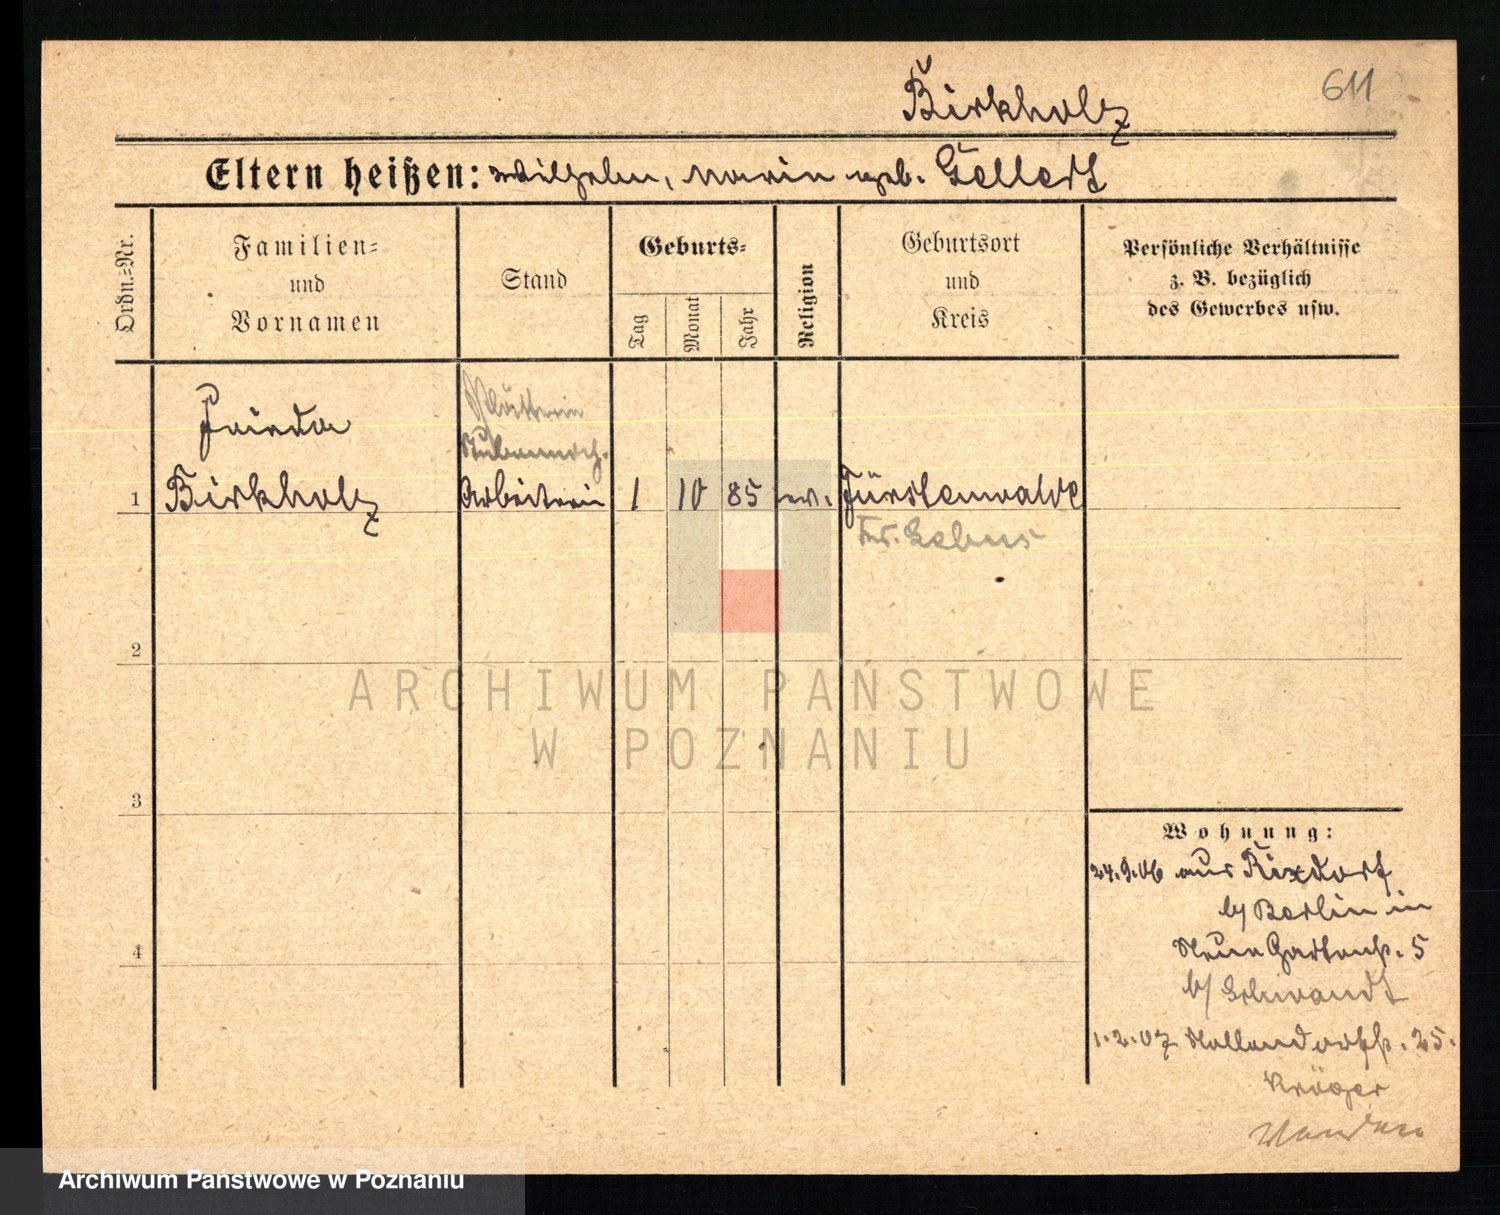 611
Birkholz
Eltern heißen: Wilhelm, Marie geb. Gellert
Ordn.=Nr.
Familien=
und
Vornamen
Stand
Geburts=
Tag
Monat
Jahr
Religion
Geburtsort
und
Kreis
Persönliche Verhältnisse
z. B. bezüglich
des Gewerbes usw.
Frieda
Plätterin
Stubenmdch.
1 Birkholz Arbeiterin 1 10 85 ev. Fürstenwalde
Kr. Lebus
2
3
4
ARCHIWUM PAŃSTWOWE
W POZNANIU
Wohnung:
24.9.06 aus Rixdorf
b/ Berlin in
Neue Gartenstr. 5
b/ Schwandt
1.2.07 Hollendorfstr. 25.
Krüger
Archiwum Państwowe w Poznaniu